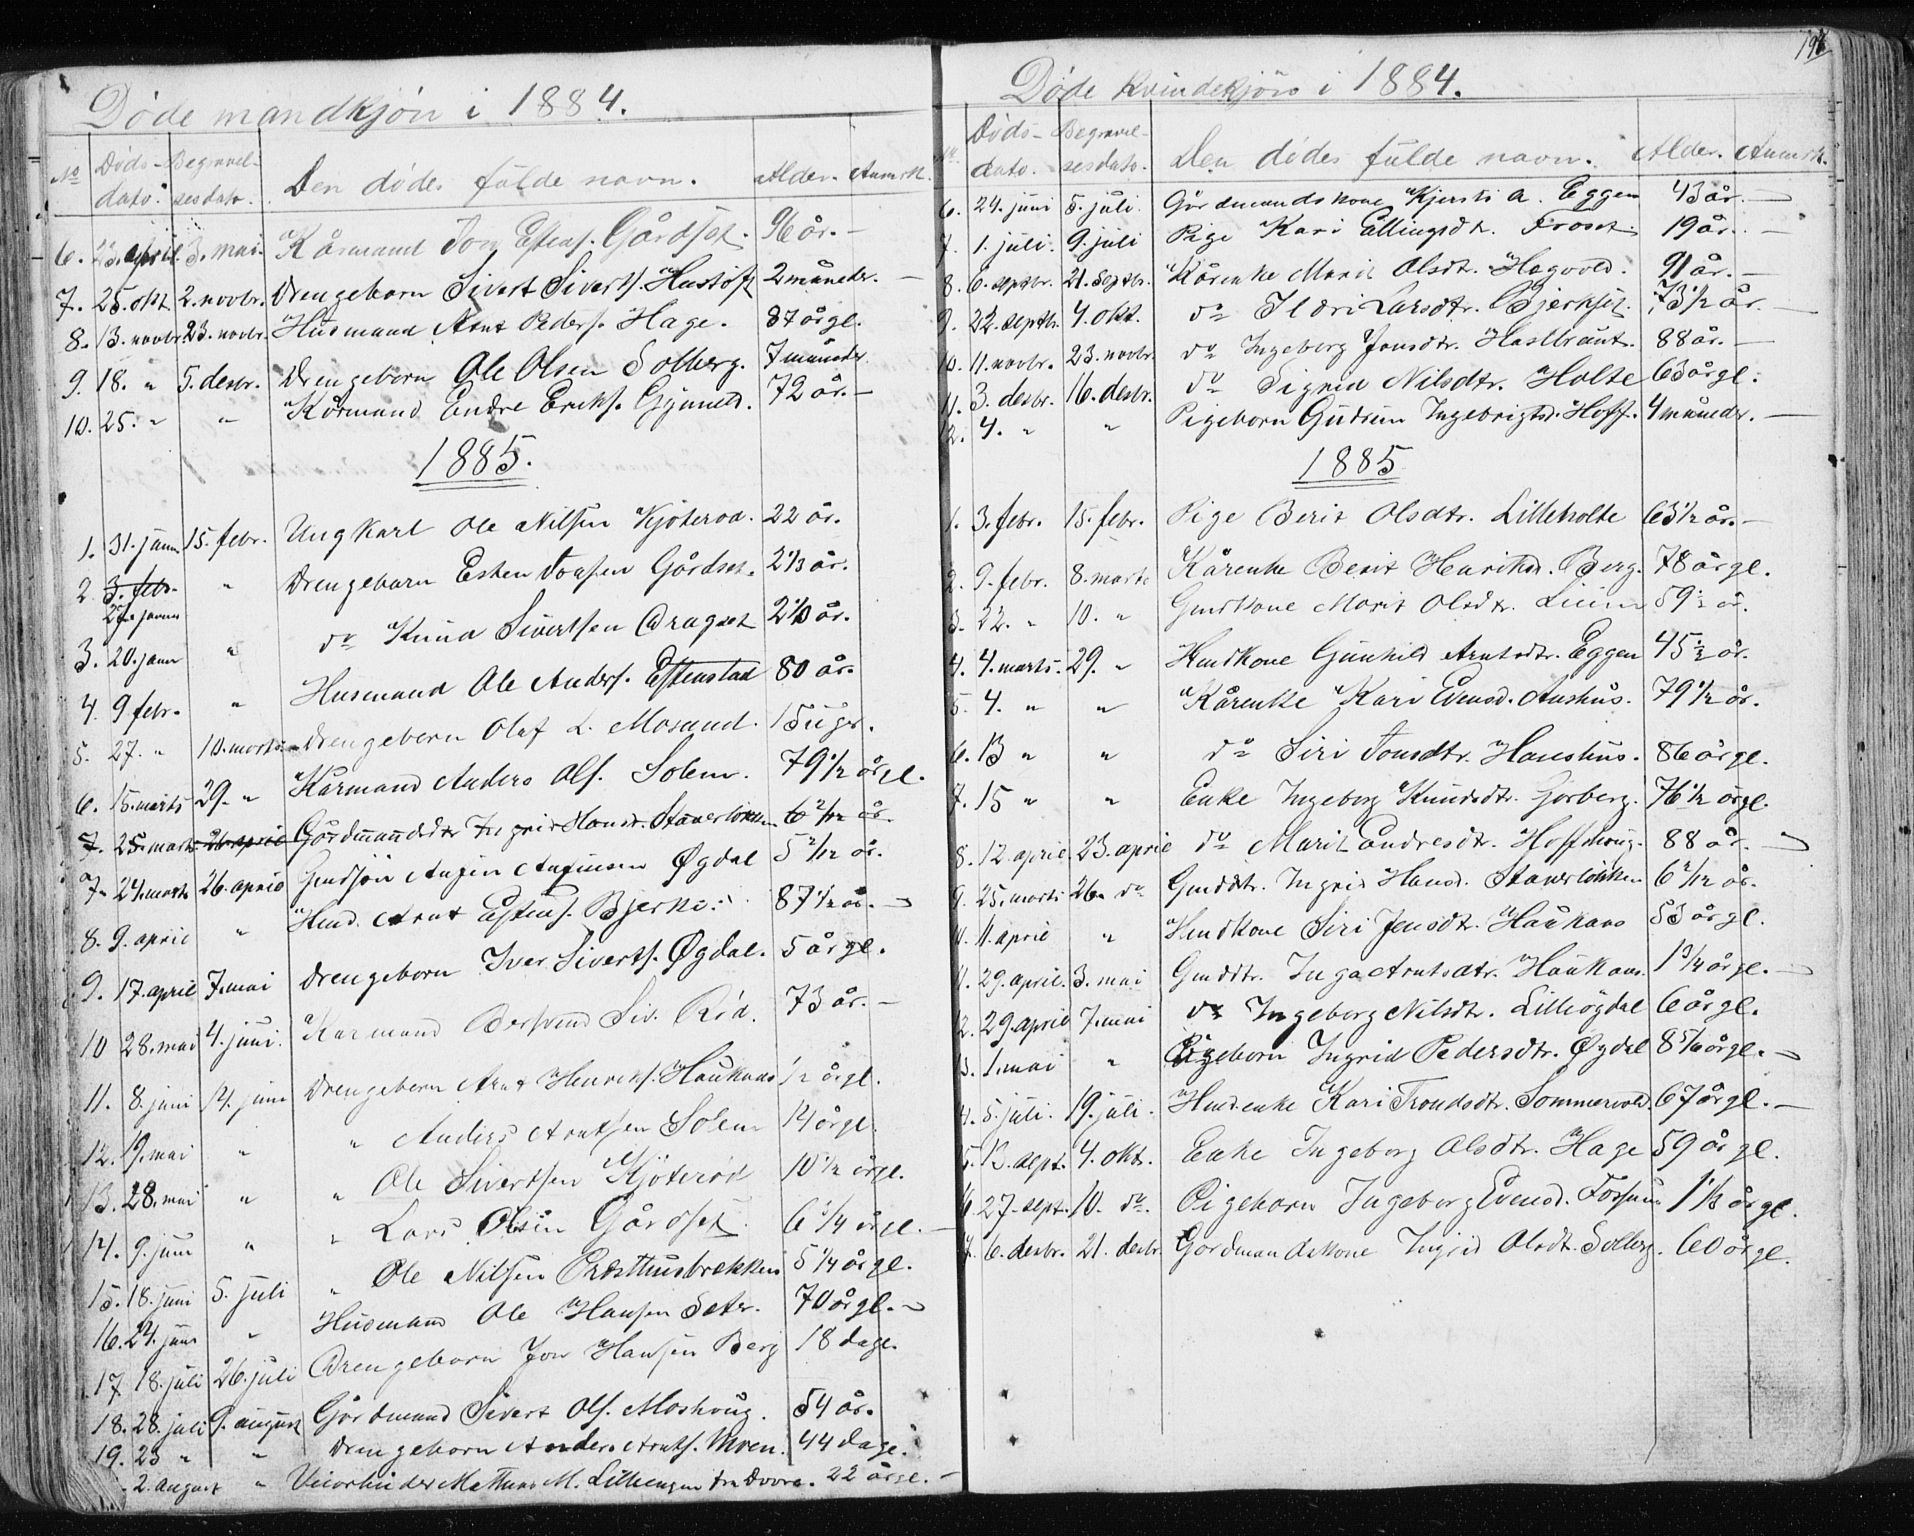 Døde mandkjön i 1884.
No Döds- dato. Begravel- sesdato. Den dödes fulde navn. Alder. Anmrk.
6. 23. april 3. mai. Kårmand Jon Estens. Gårdset. 96 år. —
7. 25. okt. 2. novbr. Drengebarn Sivert Siverts. 2 måneder. —
8. 13. novbr. 23. novbr. Husmand Arnt Peders. Hage. 87 årgl.
9. 18. " 5. desbr. Drengebarn Ole Olsen Solberg. 7 måneder.
10. 25. " " Kårmand Endre Eriks. 72 år. —
1885.
1. 31. janu 15. febr. Ungkarl Ole Nilsen Kjöterød. 22 år.
2. 3. febr. 27. janu " Drengebarn Esten Jonsen Gårdset. 2 1/3 år.
3. 20. janu " do Knud Sivertsen Dragset 2 1/3 år.
4. 9 febr. " Husmand Ole Anders. Estenstad 80 år.
5. 27. " 10. marts Drengebarn Olaf L. Mosand. 15 uger.
6. 15. marts 29. " Kårmand Anders Ols. Solem. 79 1/2 årgl.
7. 25. marts 26. april Gårdmandsdtr Ingrid Hansd. Staverlökken 6 2/12 år.
7. 24. marts 26. april Gmdsön Øgdal 5 2/12 år.
8. 9. april " Hmd. Arnt Estens. Bjerke. 87 1/2 år. —
9. 17. april 7. mai Drengebarn Iver Siverts. Øgdal. 5 årgl.
10 28. mai 4. juni. Karmand Siv. Röd. 73 år. —
11. 8. juni 14. juni Drengebarn Arnt Henriks. Haukaas 1/2 årgl.
12. 19. mai " " Anders Arntsen Solem 14 årgl.
13. 28. mai " " Ole Sivertsen Kjöteröd 10 1/2 årgl.
14. 9. juni " " Lars Olsen Gårdset. 6 1/4 årgl. —
15. 18. juni 5. juli " Ole Nilsen 5 1/4 årgl.
16. 24. juni " Husmand Ole Hansen Sæter. 70 årgl. —
17 18. juli 26. juli Drengebarn Jon Hansen Berg 18 dage.
18. 28. juli 9. august Gårdmand Sivert Ols. Moshoug. 54 år.
19. 23 " " Drengebarn Anders Arnts. Moen. 44 dage.
2. august " Mathias M. Lilleengen fra Dovre. 22 årgl. —
196
Døde kvindekjön i 1884.
Döds- dato. Begravel- sesdato. Den dödes fulde navn. Alder. Anmrk.
6. 24. juni 5. juli. Gårdmandskone Kjersti A. Eggen 43 år. —
7. 1. juli. 9. juli Pige Kari Ellingsdt. Froset. 19 år. —
8. 6. septbr. 21. septbr. Kårenke Marit Olsdtr. Hagvold. 91 år. —
9. 22. septbr. 4. okt. do Ildri Larsdtr. Bjerkset. 73 1/2 år. —
10. 11. novbr. 23. novbr. do Ingeborg Jonsdtr. 88 år. —
11. 3. desbr. 16. desbr. do Sigrid Nilsdtr. Holte 63 årgl.
12. 4. " " Pigebarn Gudrun Ingebrigtsd. Hoff. 4 måneder. —
1885
1. 3. febr. 15. febr. Pige Berit Olsdtr. Lilleholte 63 1/2 år. —
2. 9. febr. 8. marts Kårenke Berit Henriksd. Berg. 78 årgl.
3. 22. " 10. " Gmdkone Marit Olsdtr. Lium 59 1/2 år.
4. 4. marts. 29. " Hmdkone Gunhild Arntsdtr. Eggen 45 1/2 år.
5. 4. " " Kårenke Kari Evensd. Aushus. 79 1/2 år.
6. 13 " " do Siri Jonsdtr. Haushus. 86 årgl.
7. 15 " " Enke Ingeborg Knudsdtr. Gorberg. 76 1/2 årgl.
8. 12. april. 23. april do Marit Endresdtr. Hoffshoug. 88 år. —
9. 25. marts 26. do Gmddtr. Ingrid Hansd. Staverlökken 6 2/12 år.
11. april " Hmdkone Siri Jensdtr. Haukaas 53 årgl.
11. 29. april. 3. mai Gmddtr. Inga Arntsdtr. Haukaas. 1 3/4 årgl. —
12. 29. april 7. mai do Ingeborg Nilsdtr. Lilleögdal 6 årgl.
13. 1. mai " Pigebarn Ingrid Pedersdtr. Øgdal 8 5/6 årgl. —
14. 5. juli. 19. juli. Hmdenke Kari Trondsdtr. Sommervold. 67 årgl. —
15. 13. sept. 4. okt. Enke Ingeborg Olsdtr. Hage 59 årgl.
16. 27. sept. 10. do. Pigebarn Ingeborg Evensd. Fossum 1 1/3 årgl.
17. 6. desbr. 21. desbr. Gårdmandskone Ingrid Olsdt. Solberg. 60 årgl.